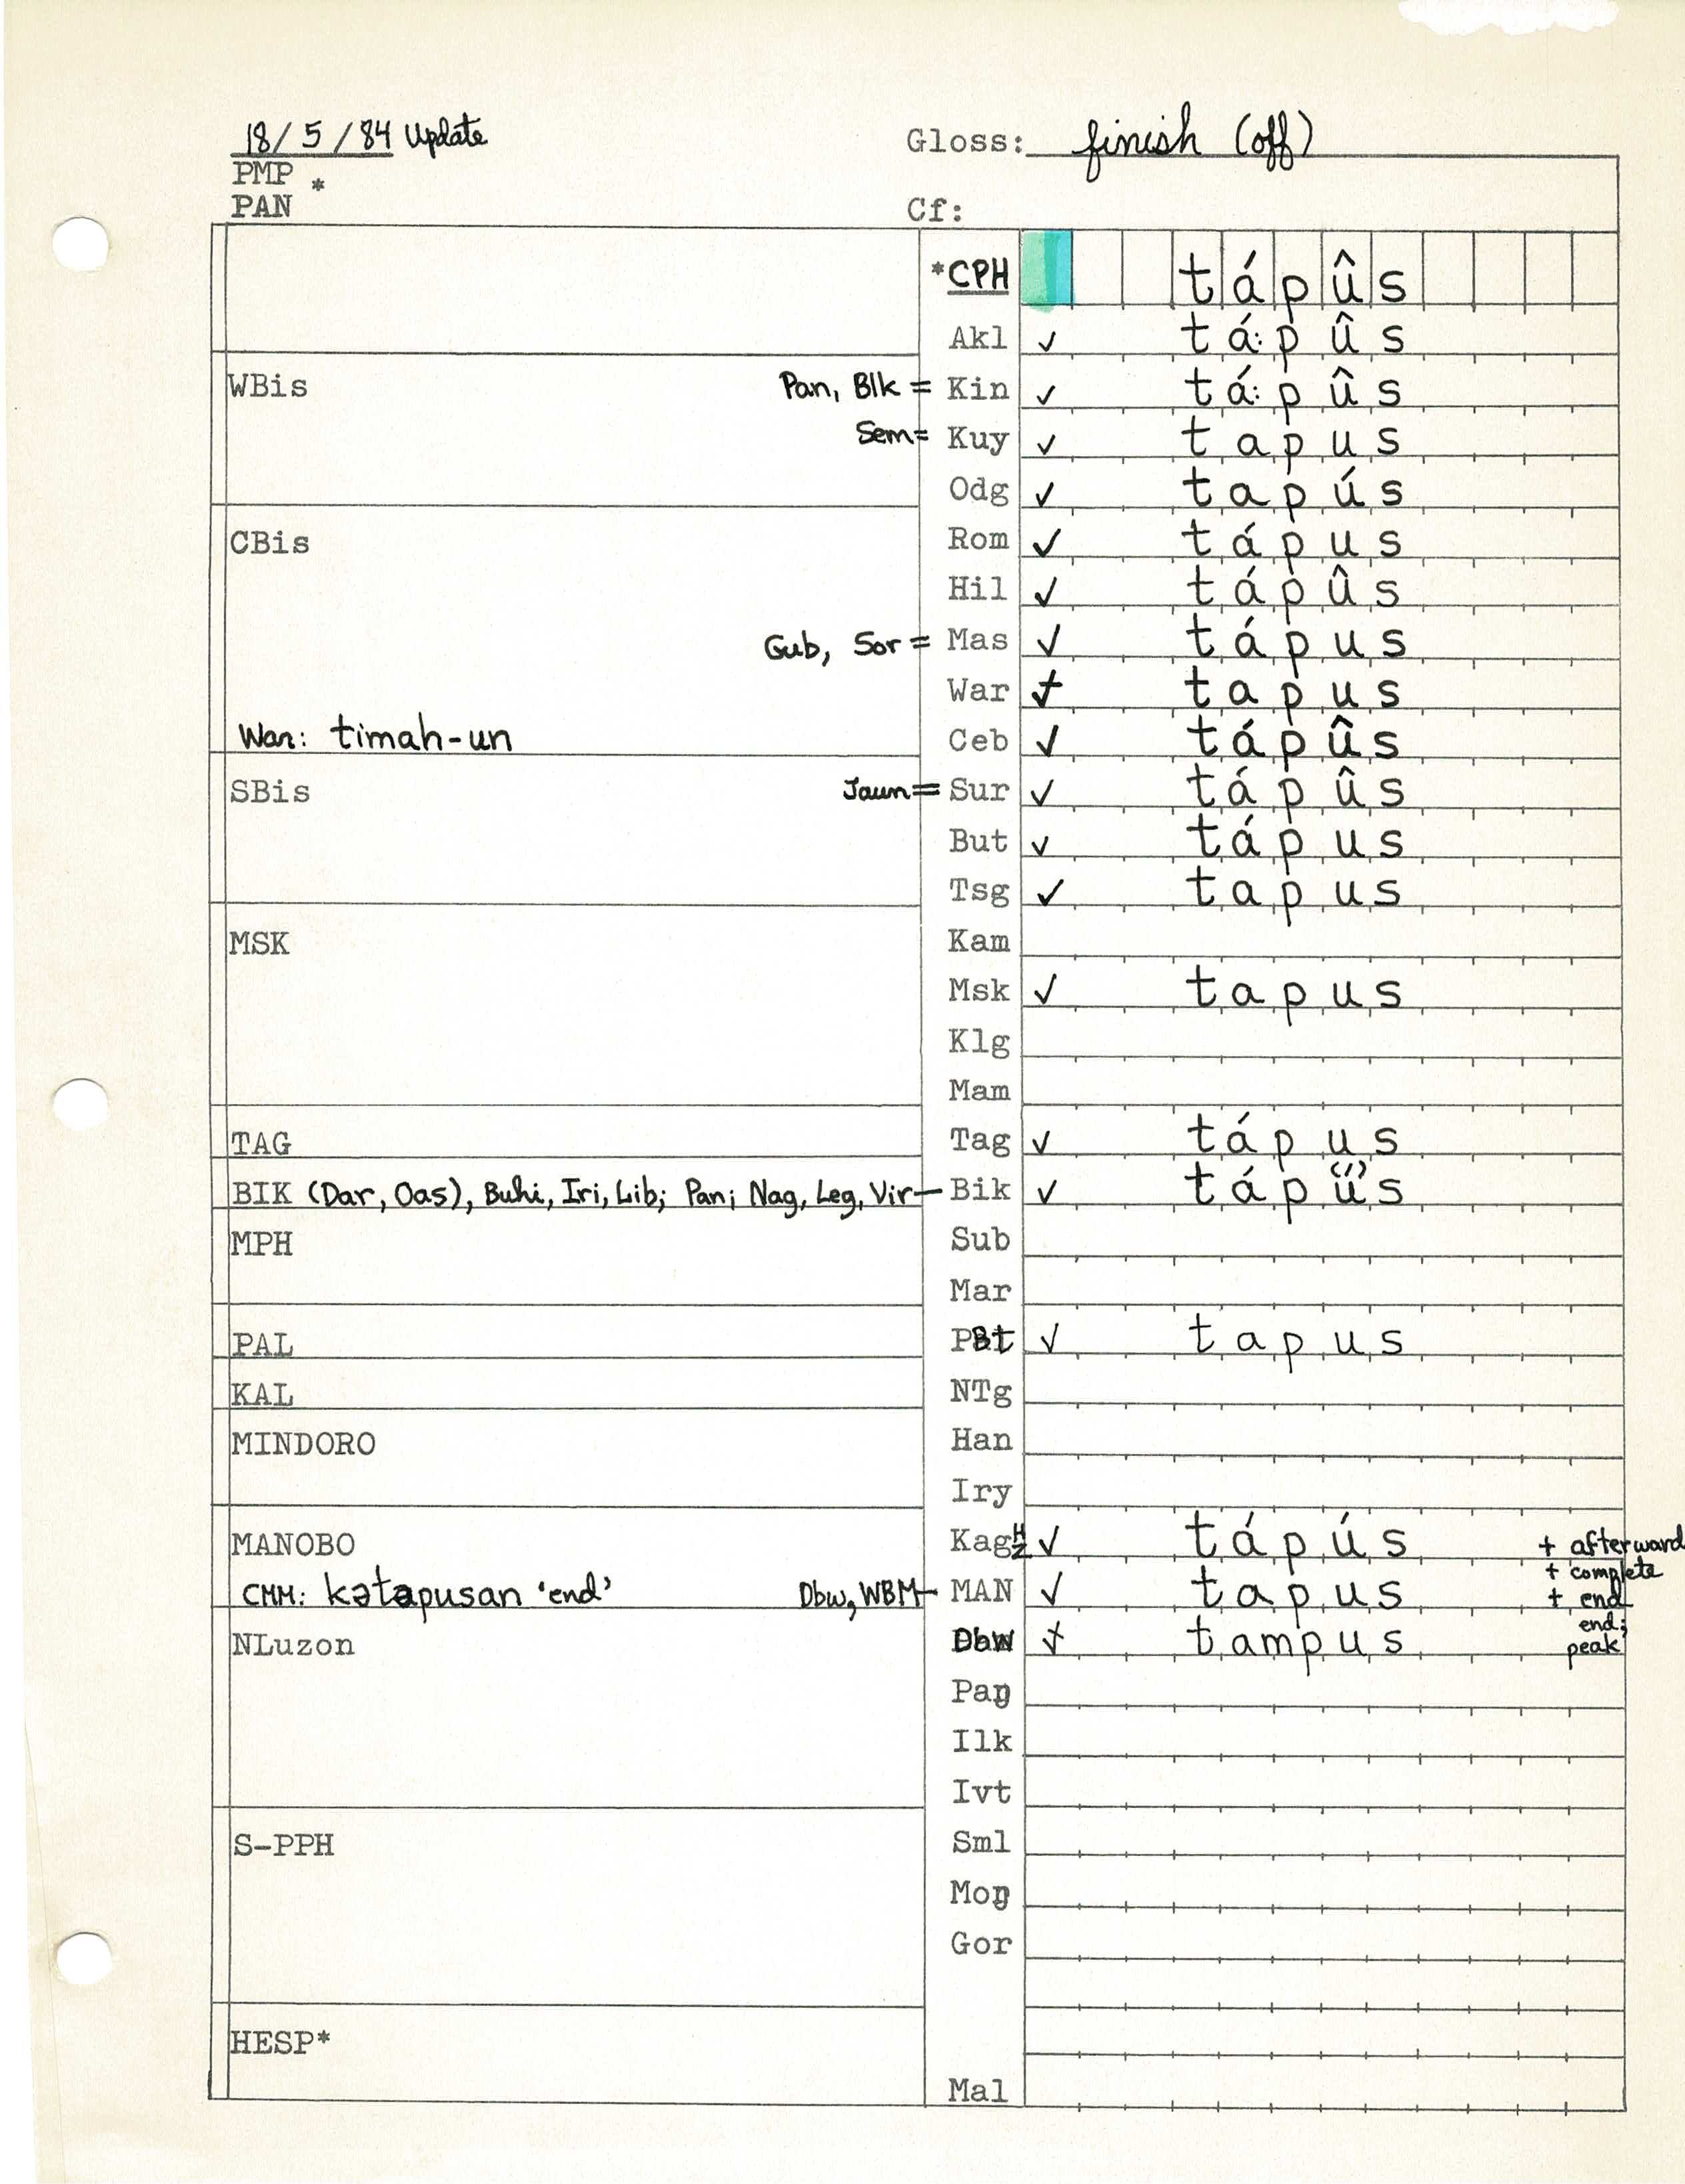 18/5/84 Update Gloss: finish (off)
PMP *
PAN Cf:
*CPH tápûs
Akl ✓ tá:pûs
WBis Pan, Blk = Kin ✓ tá:pûs
Sem= Kuy ✓ tapus
Odg ✓ tapús
CBis Rom ✓ tápus
Hil ✓ tápûs
Gub, Sor = Mas ✓ tápus
War tapus
War: timah-un Ceb ✓ tápûs
SBis Jaun = Sur ✓ tápûs
But ✓ tápus
Tsg ✓ tapus
MSK Kam
Msk ✓ tapus
Klg
Mam
TAG Tag ✓ tápus
BIK (Dar, Oas), Buhi, Iri, Lib; Pan; Nag, Leg, Vir— Bik ✓ tápu(́)s
MPH Sub
Mar
PAL PBt ✓ tapus
KAL NTg
MINDORO Han
Iry
MANOBO Kag H Z ✓ tápús + afterward
+ complete
CMM: kətapusan 'end' Dbw, WBM— MAN ✓ tapus + end
NLuzon Dbw tampus end; peak
Paŋ
Ilk
Ivt
S-PPH Sml
Moŋ
Gor
HESP*
Mal